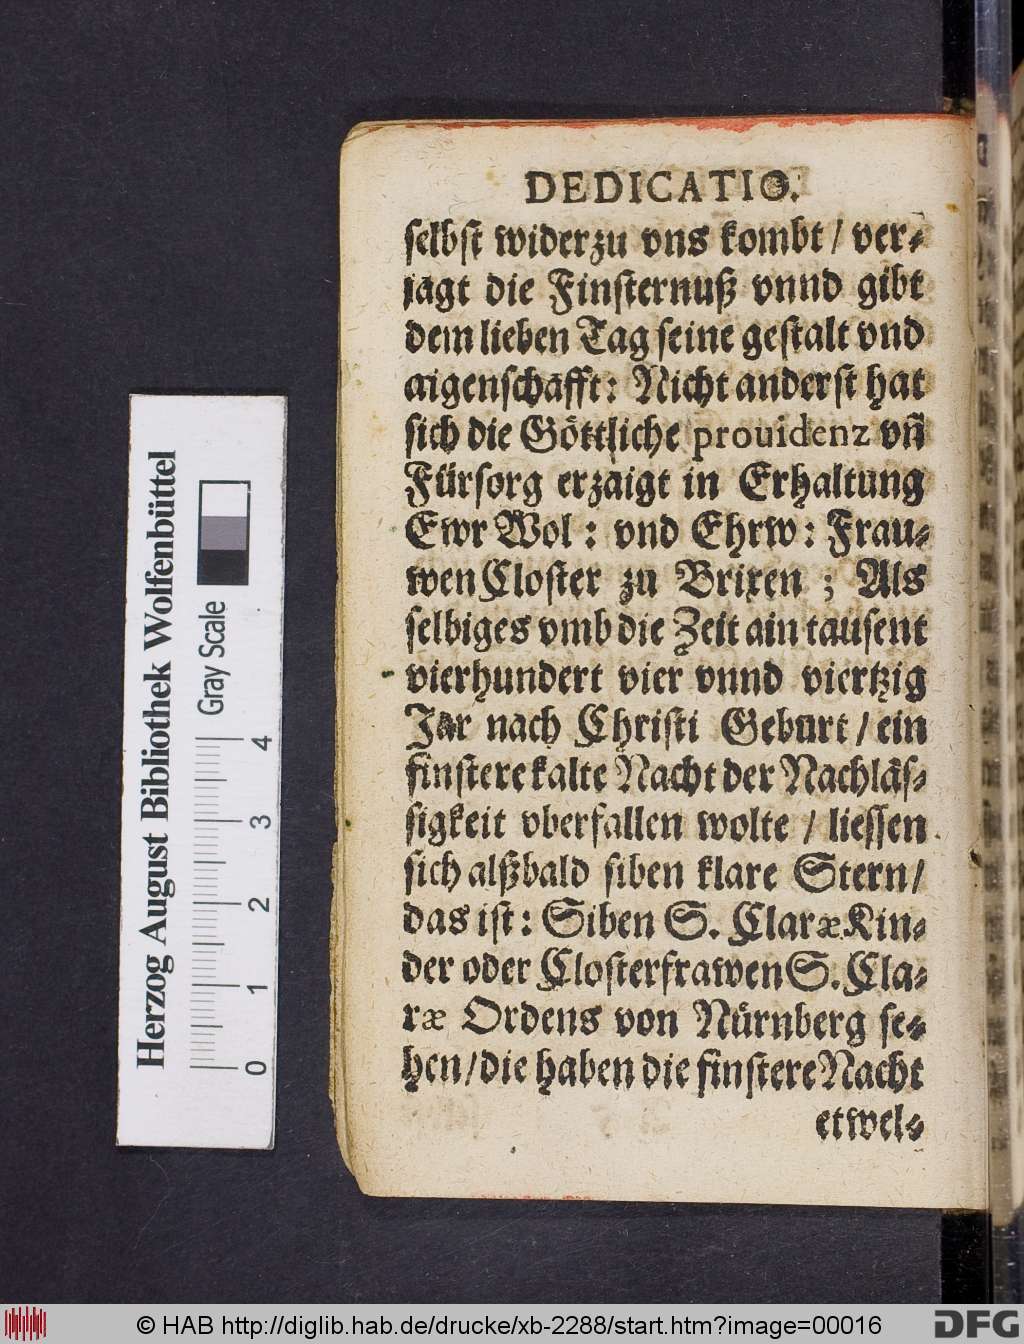 DEDICATIO.
selbst wider zu vns kombt / ver-
jagt die Finsternuß vnnd gibt
dem lieben Tag seine gestalt vnd
aigenschafft: Nicht anderst hat
sich die Göttliche prouidenz vñ
Fürsorg erzaigt in Erhaltung
Ewr Wol: vnd Ehrw: Frau-
wen Closter zu Brixen; Als
selbiges vmb die Zeit ain tausent
vierhundert vier vnnd viertzig
Jar nach Christi Geburt / ein
finstere kalte Nacht der Nachläs-
sigkeit vberfallen wolte / liessen
sich alßbald siben klare Stern /
das ist: Siben S. Claræ Kin-
der oder Closterfrawen S. Cla-
ræ Ordens von Nürnberg se-
hen / die haben die finstere Nacht
etwel-
Herzog August Bibliothek Wolfenbüttel
Gray Scale
0 1 2 3 4
© HAB http://diglib.hab.de/drucke/xb-2288/start.htm?image=00016
DFG